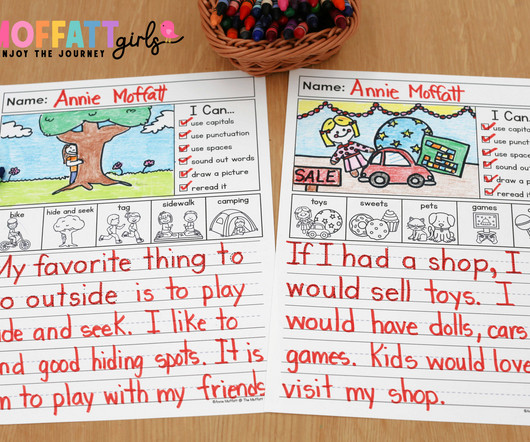 MOFFATT girls
ENJOY THE JOURNEY
Name: Annie Moffatt
I Can...
use capitals
use punctuation
use spaces
sound out words
draw a picture
reread it
bike hide and seek tag sidewalk camping
My favorite thing to
o outside is to play
ide and seek. I like to
nd good hiding spots. It is
n to play with my friends
Name: Annie Moffatt
I Can...
use capitals
use punct
use spaces
sound out
draw a p
reread it
SALE
toys sweets pets games
If I had a shop, I
would sell toys. I
would have dolls, cars
games. Kids would love
visit my shop.